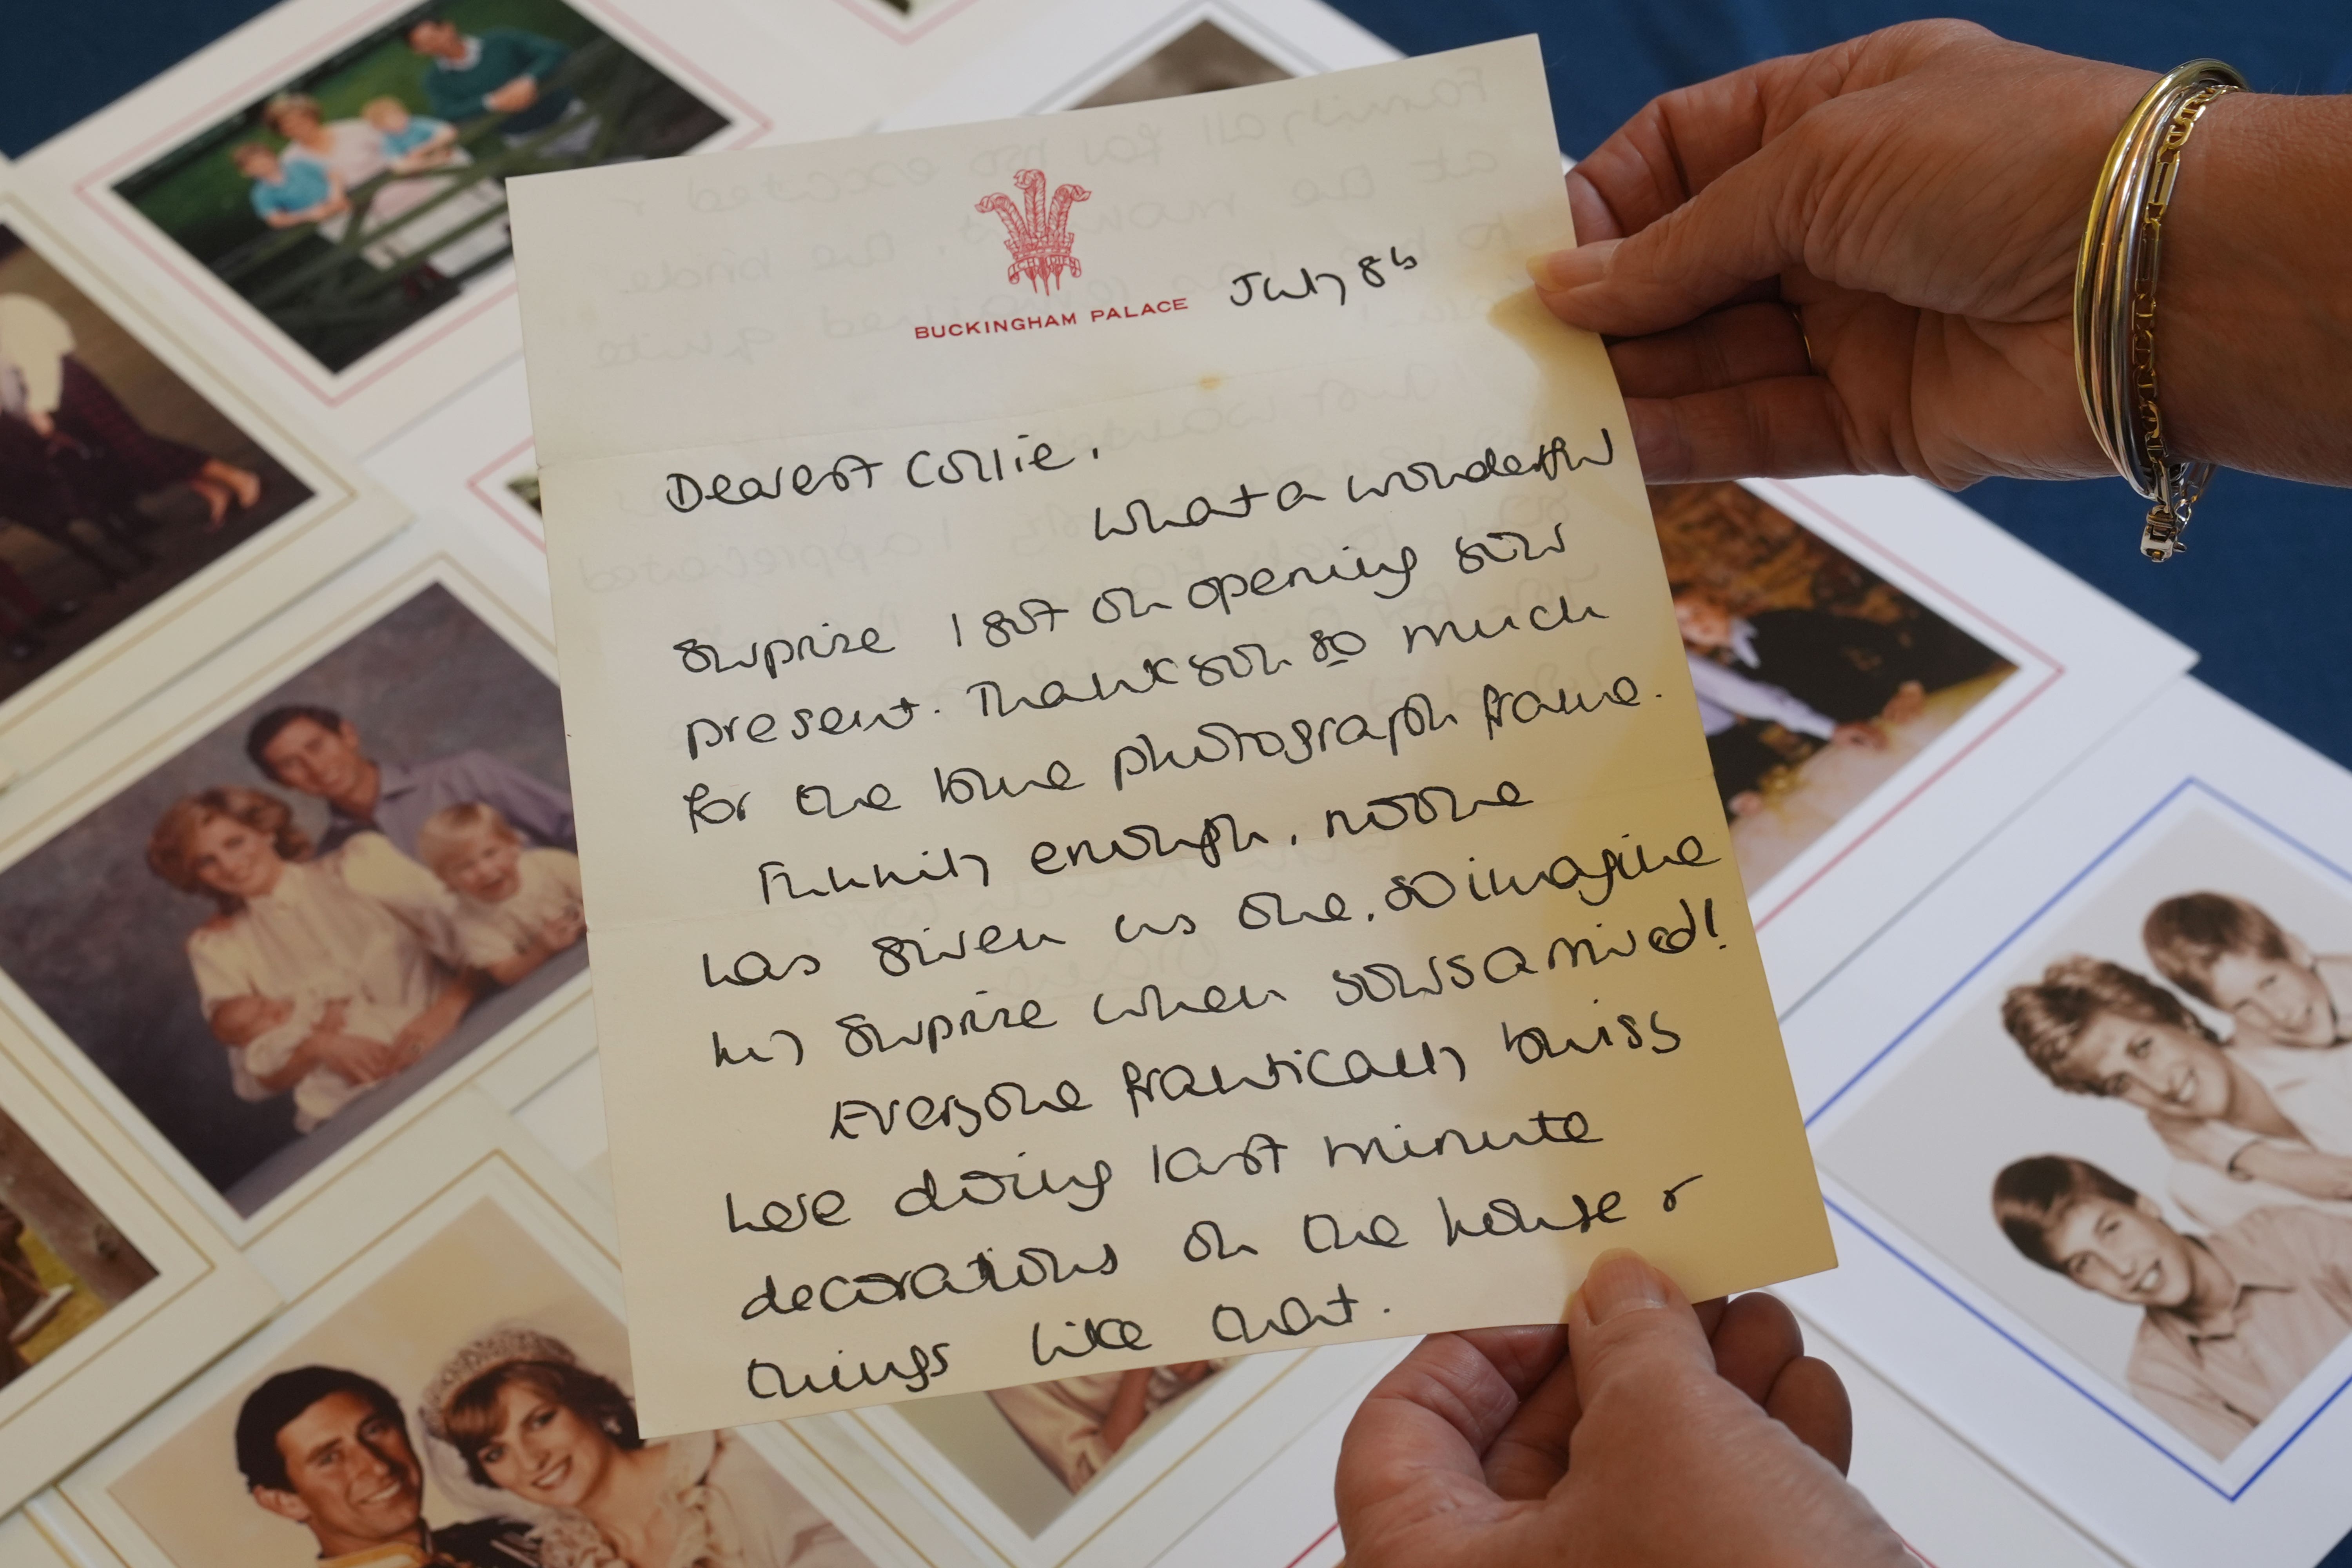 BUCKINGHAM PALACE
July 86
Dearest Collie,
What a wonderful
surprise I got on opening your
present. Thank you so much
for the blue photograph frame.
Funnily enough, noone
has given us one, so imagine
my surprise when yours arrived!
Everyone frantically busy
here doing last minute
decorations on the house &
things like that.